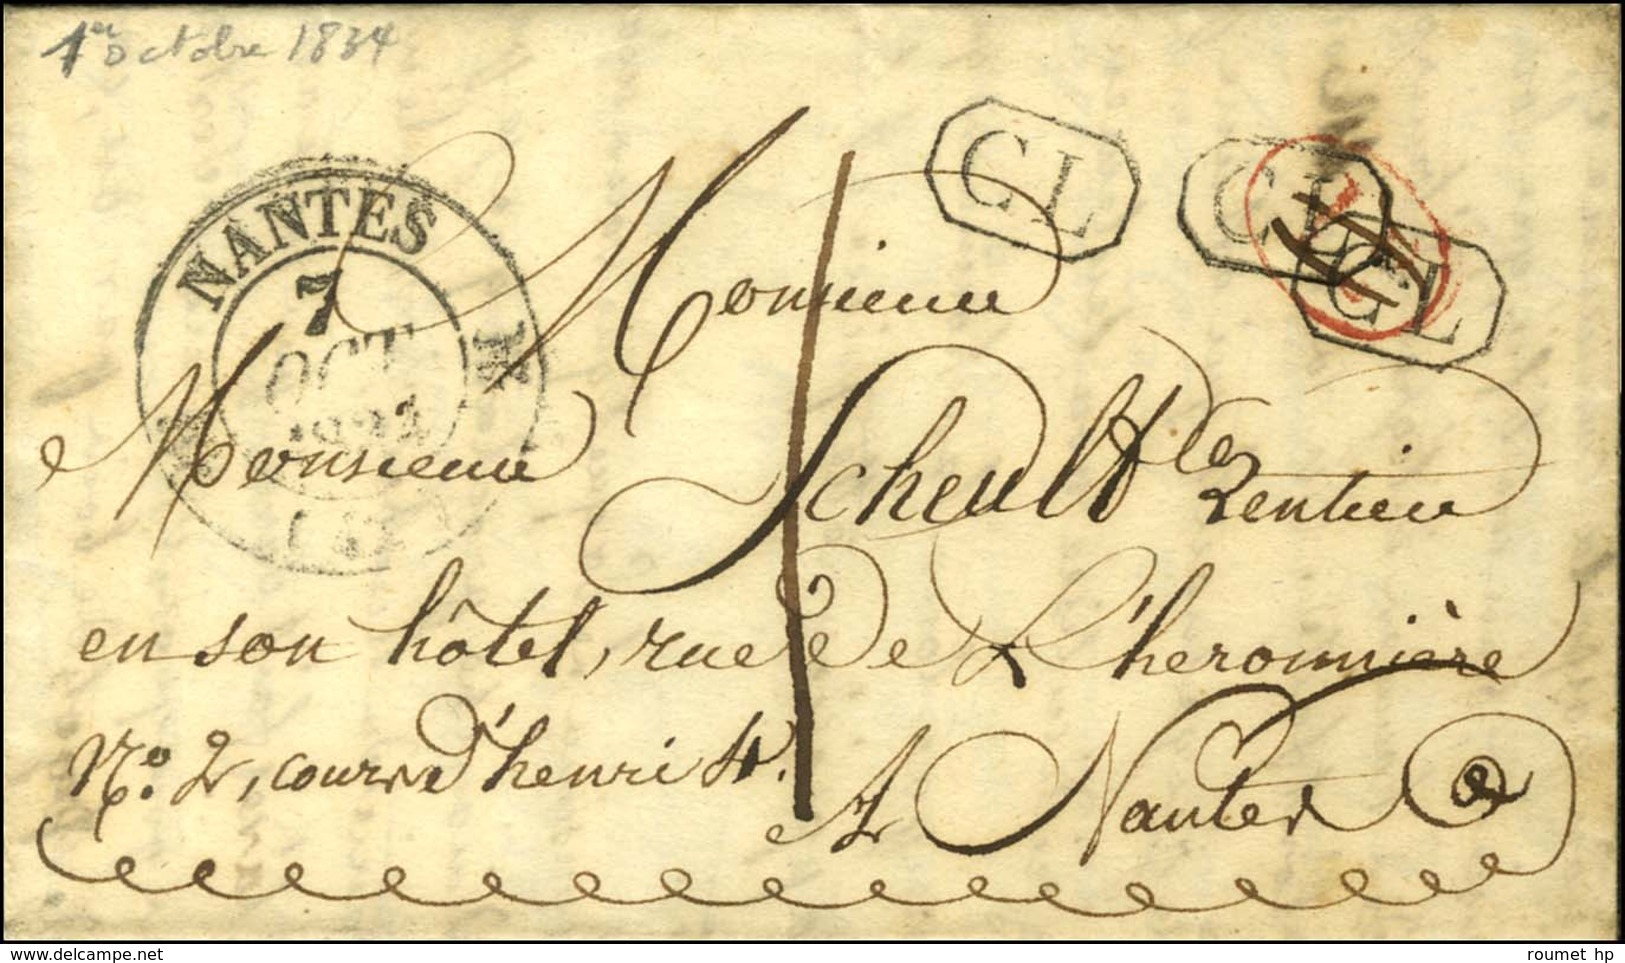 1er octobre 1834
CL
CL
CL
NANTES
7
OCT
1834
(42)
Monsieur
Monsieur Scheult
Rentier
en son hôtel, rue de L'heronnière
No. 2, cours d'henri 4.
A Nantes
roumet hp